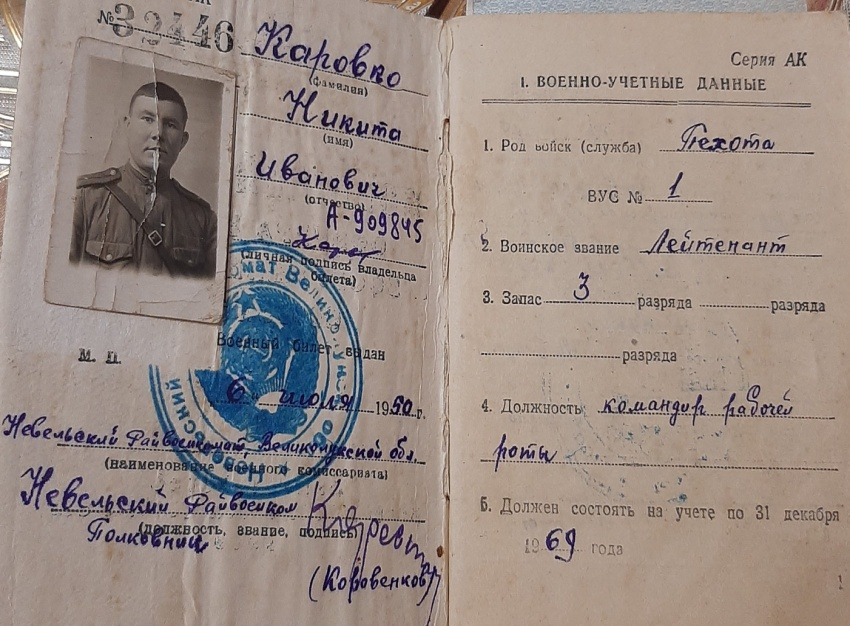 № 32446
Каровко
(фамилия)
Никита
(имя)
Иванович
(отчество)
А-909845
(личная подпись владельца
билета)
М. П.
Военный билет выдан
6 июля 1950 г.
Невельский Райвоенкомат, Великолукской обл.
(наименование военного комиссариата)
Невельский Райвоенком
(должность, звание, подпись)
Полковник
(Коровенков)
Серия АК
I. ВОЕННО-УЧЕТНЫЕ ДАННЫЕ
1. Род войск (служба) Пехота
ВУС № 1
2. Воинское звание Лейтенант
3. Запас 3 разряда разряда
разряда
4. Должность командир рабочей
роты
5. Должен состоять на учете по 31 декабря
1969 года
1